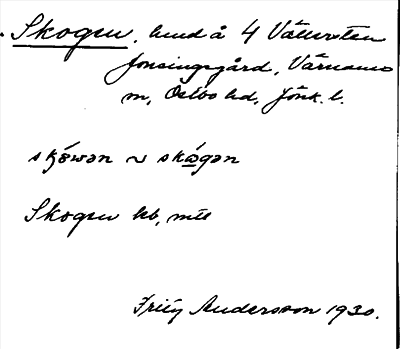 Skogen, lund å 4 Vätersten
Jonsingsgård, Värnamo
sn, Östbo hd, Jönk. l.
skówən ~ skógən
Skogen hb, mtl
Fritz Andersson 1930.